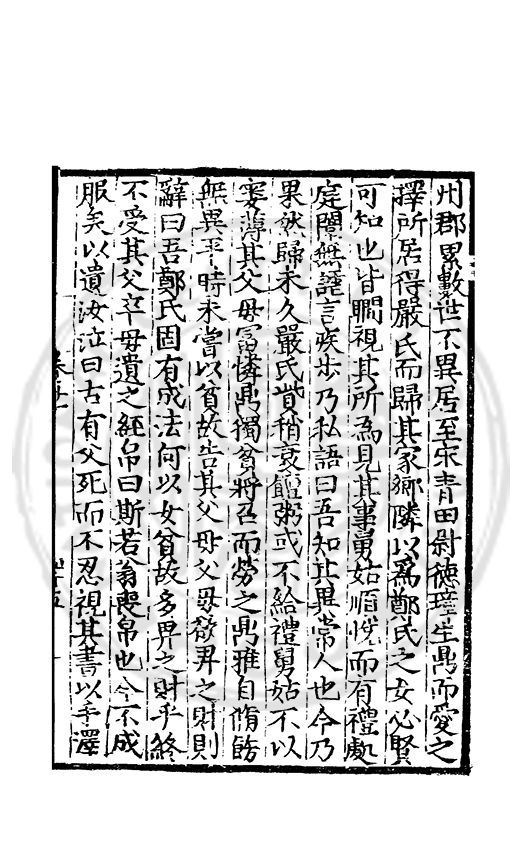 州郡累數世不異居至宋青田尉德璋生鼎而愛之
擇所居得嚴氏而歸其家鄉隣以為鄭氏之女必賢
可知也皆瞯視其所為見其事舅姑順悅而有禮處
庭闈無諠言疾步乃私語曰吾知其異常人也今乃
果然歸未久嚴氏貲稍衰饘粥或不給禮舅姑不以
寠薄其父母富憐鼎獨貧將召而勞之鼎雅自脩飭
無異平時未嘗以貧故告其父母父母欲畀之財則
辭曰吾鄭氏固有成法何以女貧故多畀之財乎終
不受其父卒母遺之絰帛曰斯若翁喪帛也今不成
服矣以遺汝泣曰古有父死而不忍視其書以手澤